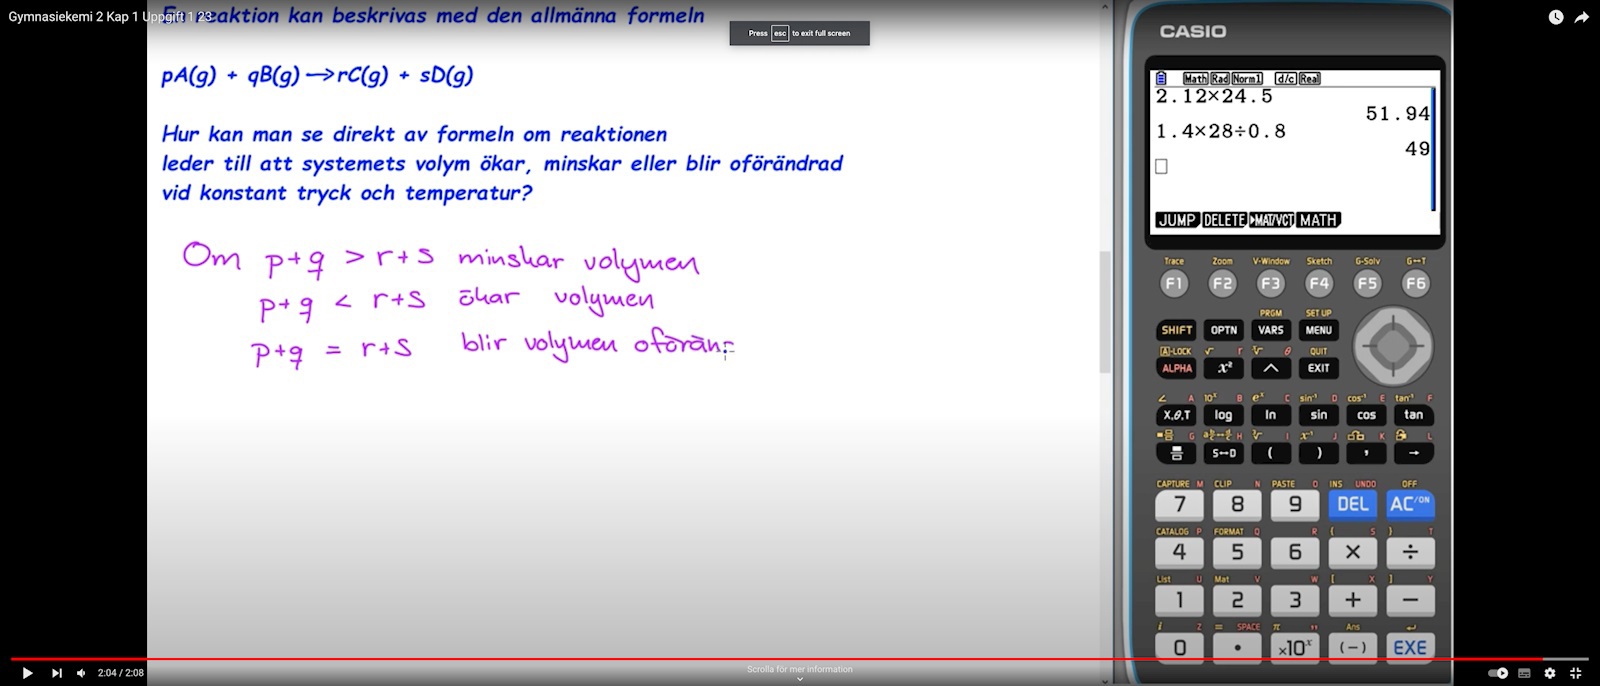 Gymnasiekemi 2 Kap 1 Uppgift 1 23
reaktion kan beskrivas med den allmänna formeln
Press esc to exit full screen
pA(g) + qB(g) → rC(g) + sD(g)
Hur kan man se direkt av formeln om reaktionen
leder till att systemets volym ökar, minskar eller blir oförändrad
vid konstant tryck och temperatur?
Om p+q > r+s minskar volymen
p+q < r+s ökar volymen
p+q = r+s blir volymen oförän
Scrolla för mer information
2:04 / 2:08
CASIO
Math Rad Norm1 d/c Real
2.12×24.5
51.94
1.4×28÷0.8
49
JUMP DELETE ▶MAT/VCT MATH
Trace Zoom V-Window Sketch G-Solv G↔T
F1 F2 F3 F4 F5 F6
PRGM SET UP
SHIFT OPTN VARS MENU
A-LOCK √ r θ QUIT
ALPHA x² ^ EXIT
∠ A 10ˣ B eˣ C sin⁻¹ D cos⁻¹ E tan⁻¹ F
X,θ,T log ln sin cos tan
G H I x⁻¹ J K L
S↔D ( ) , →
CAPTURE M CLIP N PASTE O INS UNDO OFF
7 8 9 DEL AC/ON
CATALOG P FORMAT Q R { S } T
4 5 6 × ÷
List U Mat V W [ X ] Y
1 2 3 + −
i Z = SPACE π " Ans ↵
0 • ×10ˣ (−) EXE